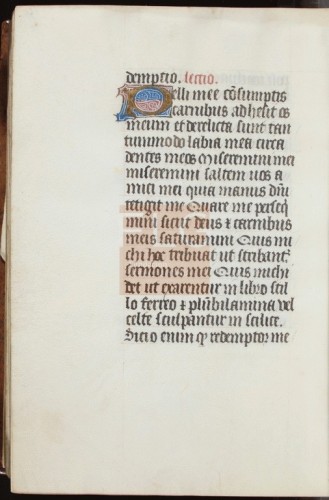 demptio. lectio.
Pelli mee cõsumptis
carnibus adhesit os
meum et derelicta sunt tan
tummodo labia mea circa
dentes meos Miseremini mei
miseremini saltem vos a
mici mei quia manus dñi
tetigit me Quare me perseq̃
mini sicut deus ⁊ carnibus
meis saturamini Quis mi
chi hoc tribuat ut scribant̃
sermones mei Quis michi
det ut exarentur in libro stil
lo ferreo ⁊ plũbi lamina vel
celte sculpantur in scilice.
Scio enim ꝙ redemptor me